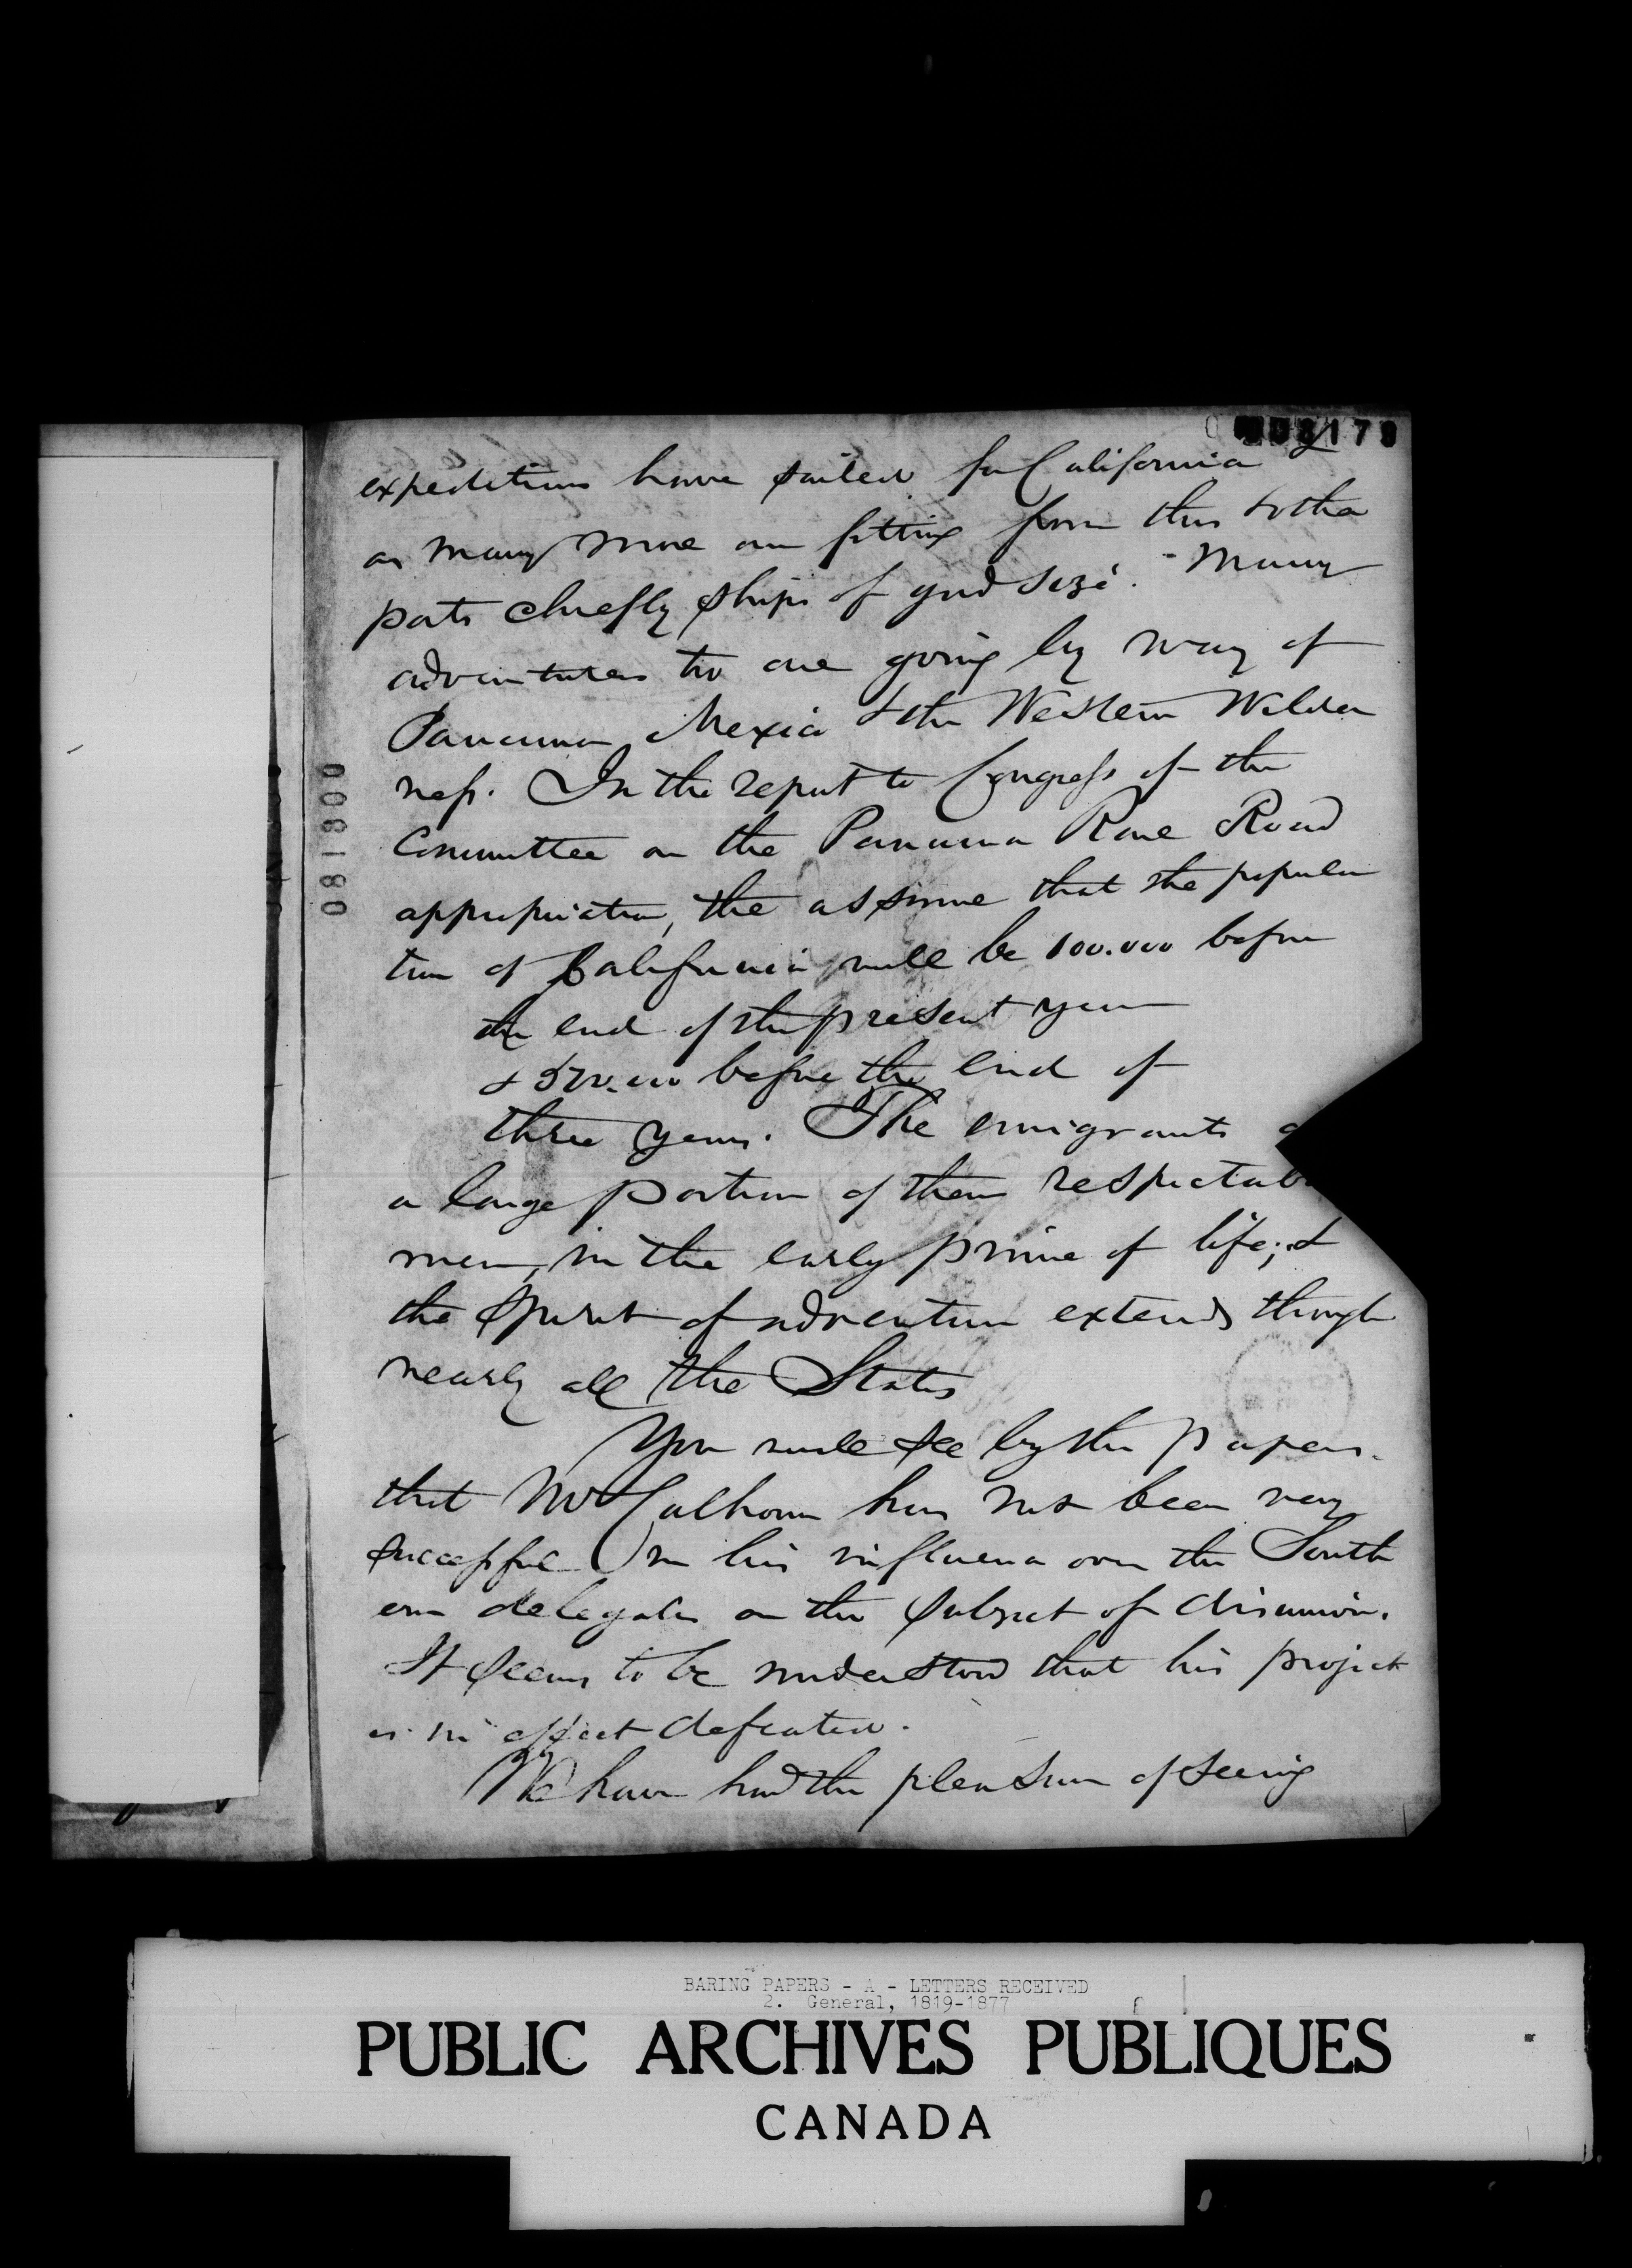 08179
expeditions have sailed for California &
as many more are fitting from this & other
ports chiefly ships of good size. - Many
adventurers too are going by way of
Panama, Mexico & the Western Wilder
ness. In the report to Congress of the
Committee on the Panama Road
appropriation, the assume that the popula
tion of California will be 100.000 before
the end of the present year
& before the end of
three years. The emigrants a
a large portion of them respectab
men, in the early prime of life; &
the spirit of adventure extends through
nearly all the States
You will see by the papers.
that Mr Calhoun has not been very
successful in his influence over the South
ern delegates on the subject of disunion.
It seems to be understood that his project
is in effect defeated.
We have had the pleasure of seeing
008180
BARING PAPERS - A - LETTERS RECEIVED
2. General, 1819-1877
PUBLIC ARCHIVES PUBLIQUES
CANADA